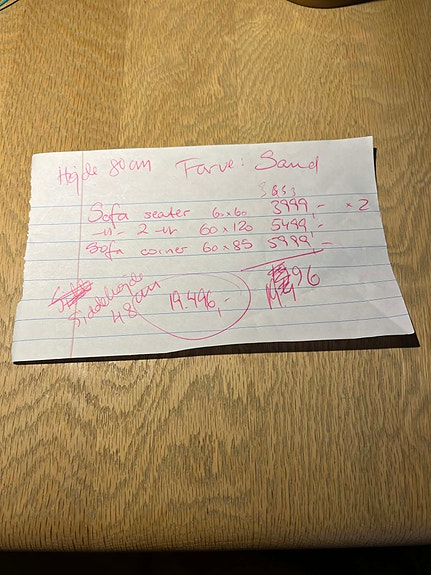 Højde 80 cm Farve: Sand
Sofa seater 60x60 3999,- x2
-11- 2-11 60x120 5499,-
Sofa corner 60x85 5999,-
Siddehøjde
48 cm
19.496,-